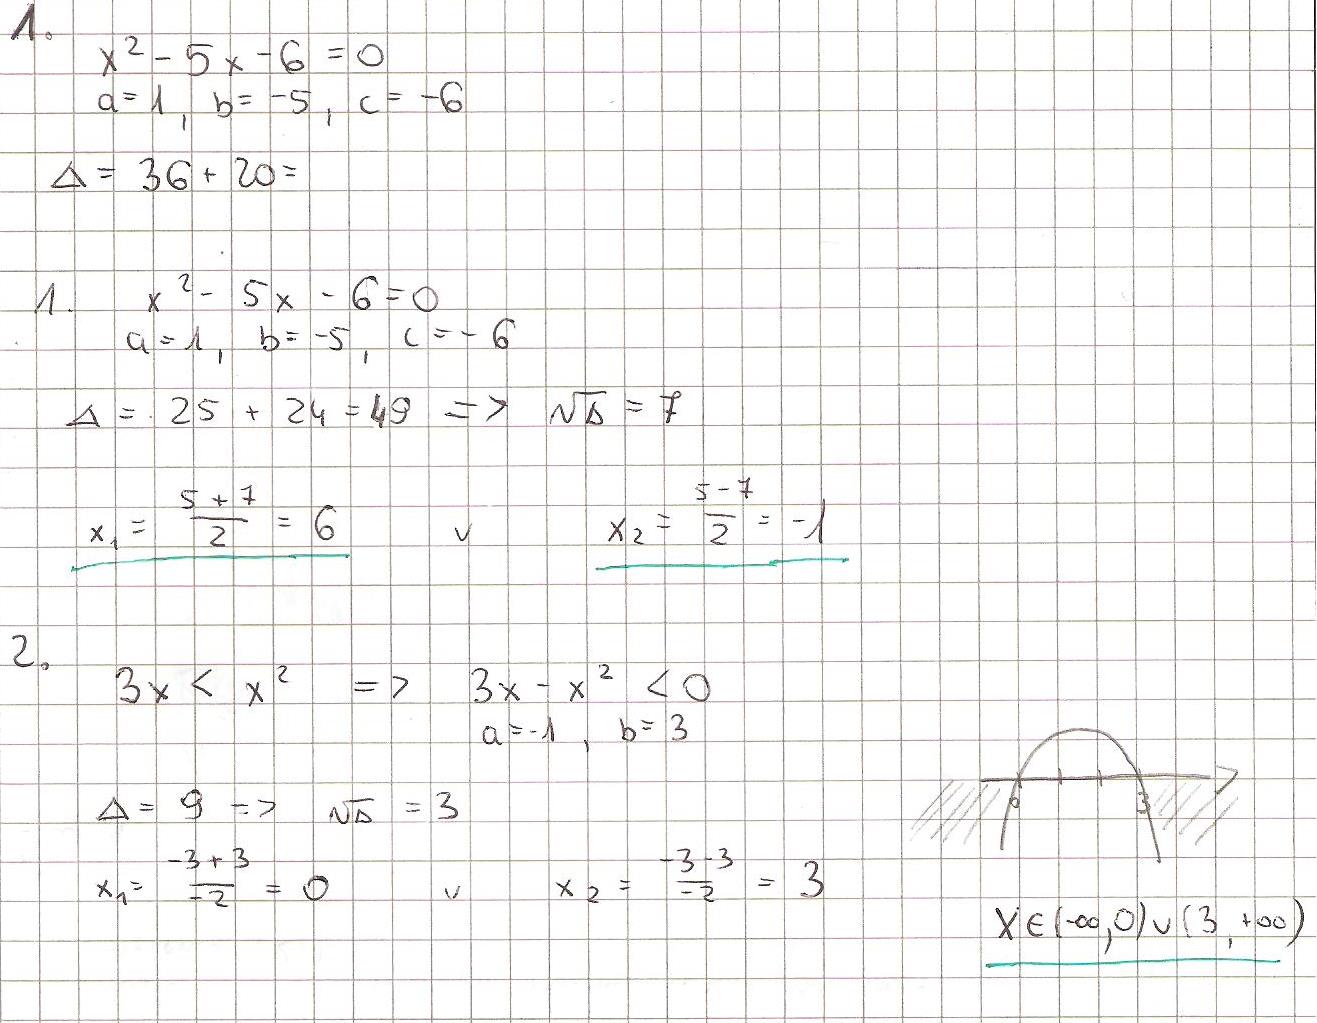 1.
x² - 5x - 6 = 0
a = 1, b = -5, c = -6
Δ = 36 + 20 =
1. x² - 5x - 6 = 0
a = 1, b = -5, c = -6
Δ = 25 + 24 = 49 => √Δ = 7
x₁ = (5 + 7)/2 = 6 v x₂ = (5 - 7)/2 = -1
2.
3x < x² => 3x - x² < 0
a = -1, b = 3
Δ = 9 => √Δ = 3
0 3
x₁ = (-3 + 3)/-2 = 0 v x₂ = (-3 - 3)/-2 = 3
X ∈ (-∞, 0) ∪ (3, +∞)